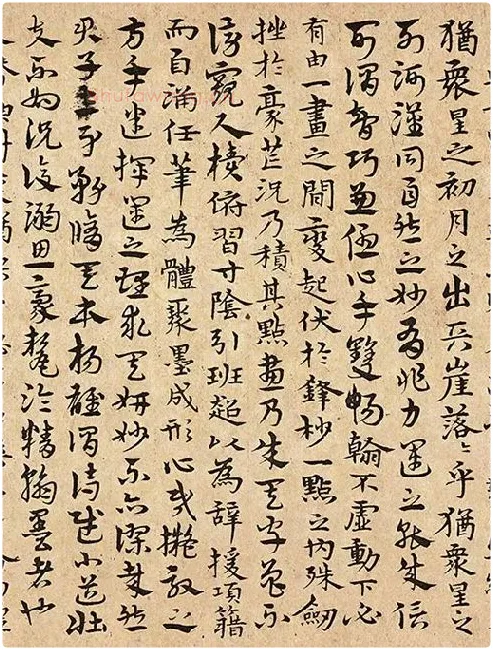 猶眾星之初月之出天崖落〻乎猶眾星之
列河漢同自然之妙有非力運之能成信
可謂智巧兼優心手雙暢翰不虛動下必
有由一畫之間變起伏於鋒杪一點之內殊衄
挫於豪芒況乃積其點畫乃成其字曾不
傍窺尺牘俯習寸陰引班超以為辭援項籍
而自滿任筆為體聚墨成形心或擬效之
方手迷揮運之理求其妍妙不亦謬哉然
君子立身務脩其本揚雄謂詩賦小道壯
夫不為況復溺思豪氂淪精翰墨者也